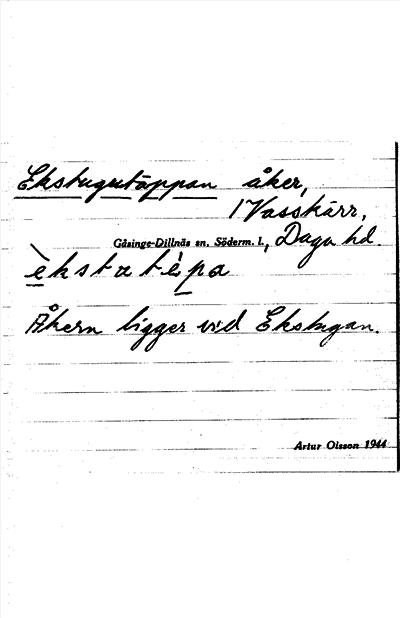 Ekstugutäppan åker,
i Vasskärr,
Gåsinge-Dillnäs sn. Söderm. l., Daga hd.
èkstatépa
Åkern ligger vid Ekstugan.
Artur Olsson 1944